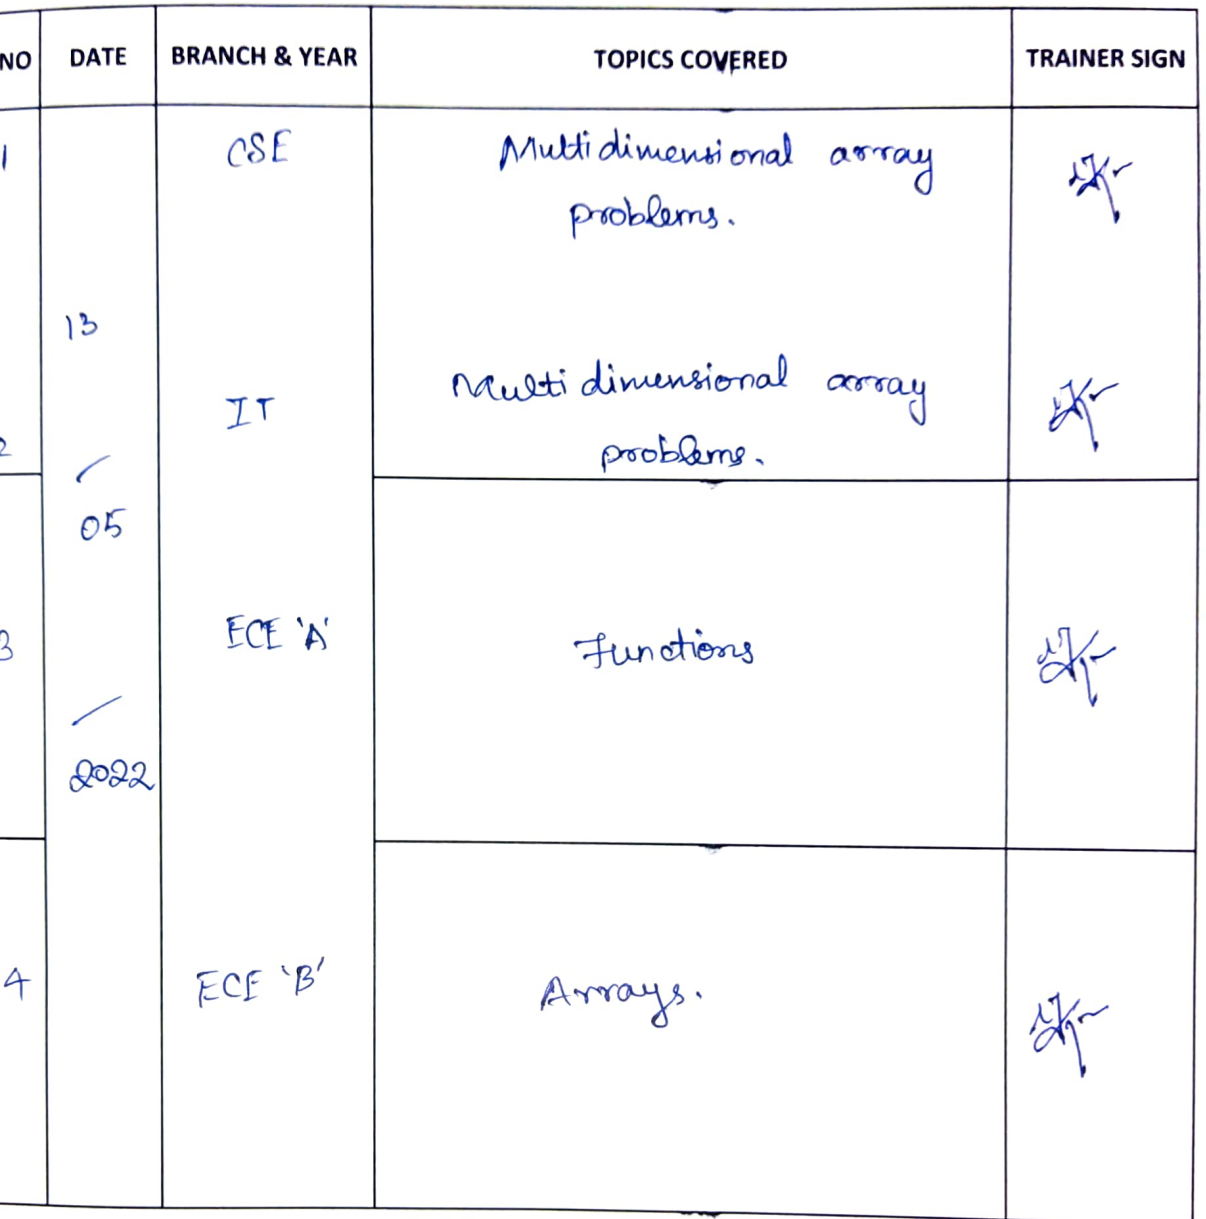 NO DATE BRANCH & YEAR TOPICS COVERED TRAINER SIGN
1 CSE Multidimensional array
problems.
13
IT Multi dimensional array
2 problems.
/
05
3 ECE 'A' Functions
/
2022
4 ECE 'B' Arrays.